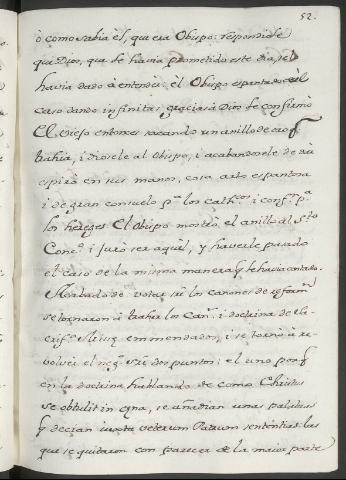 52.
ò como sabia èl, que era Obispo: respondiole
que Dios, que le havia prometido este dia, se lo
havia dado à entender: èl Obispo espantado del
caso dando infinitas gracias à Dios le confirmò
El viejo entonces sacando un anillo de oro q̃
trahia, i diosele al Obispo, i acabandosele de dàr
espirò en sus manos, cosa arto espantosa
i de gran consuelo pª. los cathcos. i confn. pª.
los hereges. El Obispo mostrò el anillo al Sto
Conco. i jurò ser aquèl, y haverle pasado
el caso de la misma manera q̃ te havia contado.
Acabado de votar sre los canones de reformn.
se tornaron à traher los Cans. i doctrina de Sa-
crifo. Missę emmendados, i se tornò à re-
volver el nego. sre dos puntos: el uno porq̃
en la doctrina hablando de como Christus
se obtulit in cęna, se añadian unas palabras
q̃ decian iuxta veterum Patrum sententias: las
que se quitaron con parecer de la maior parte